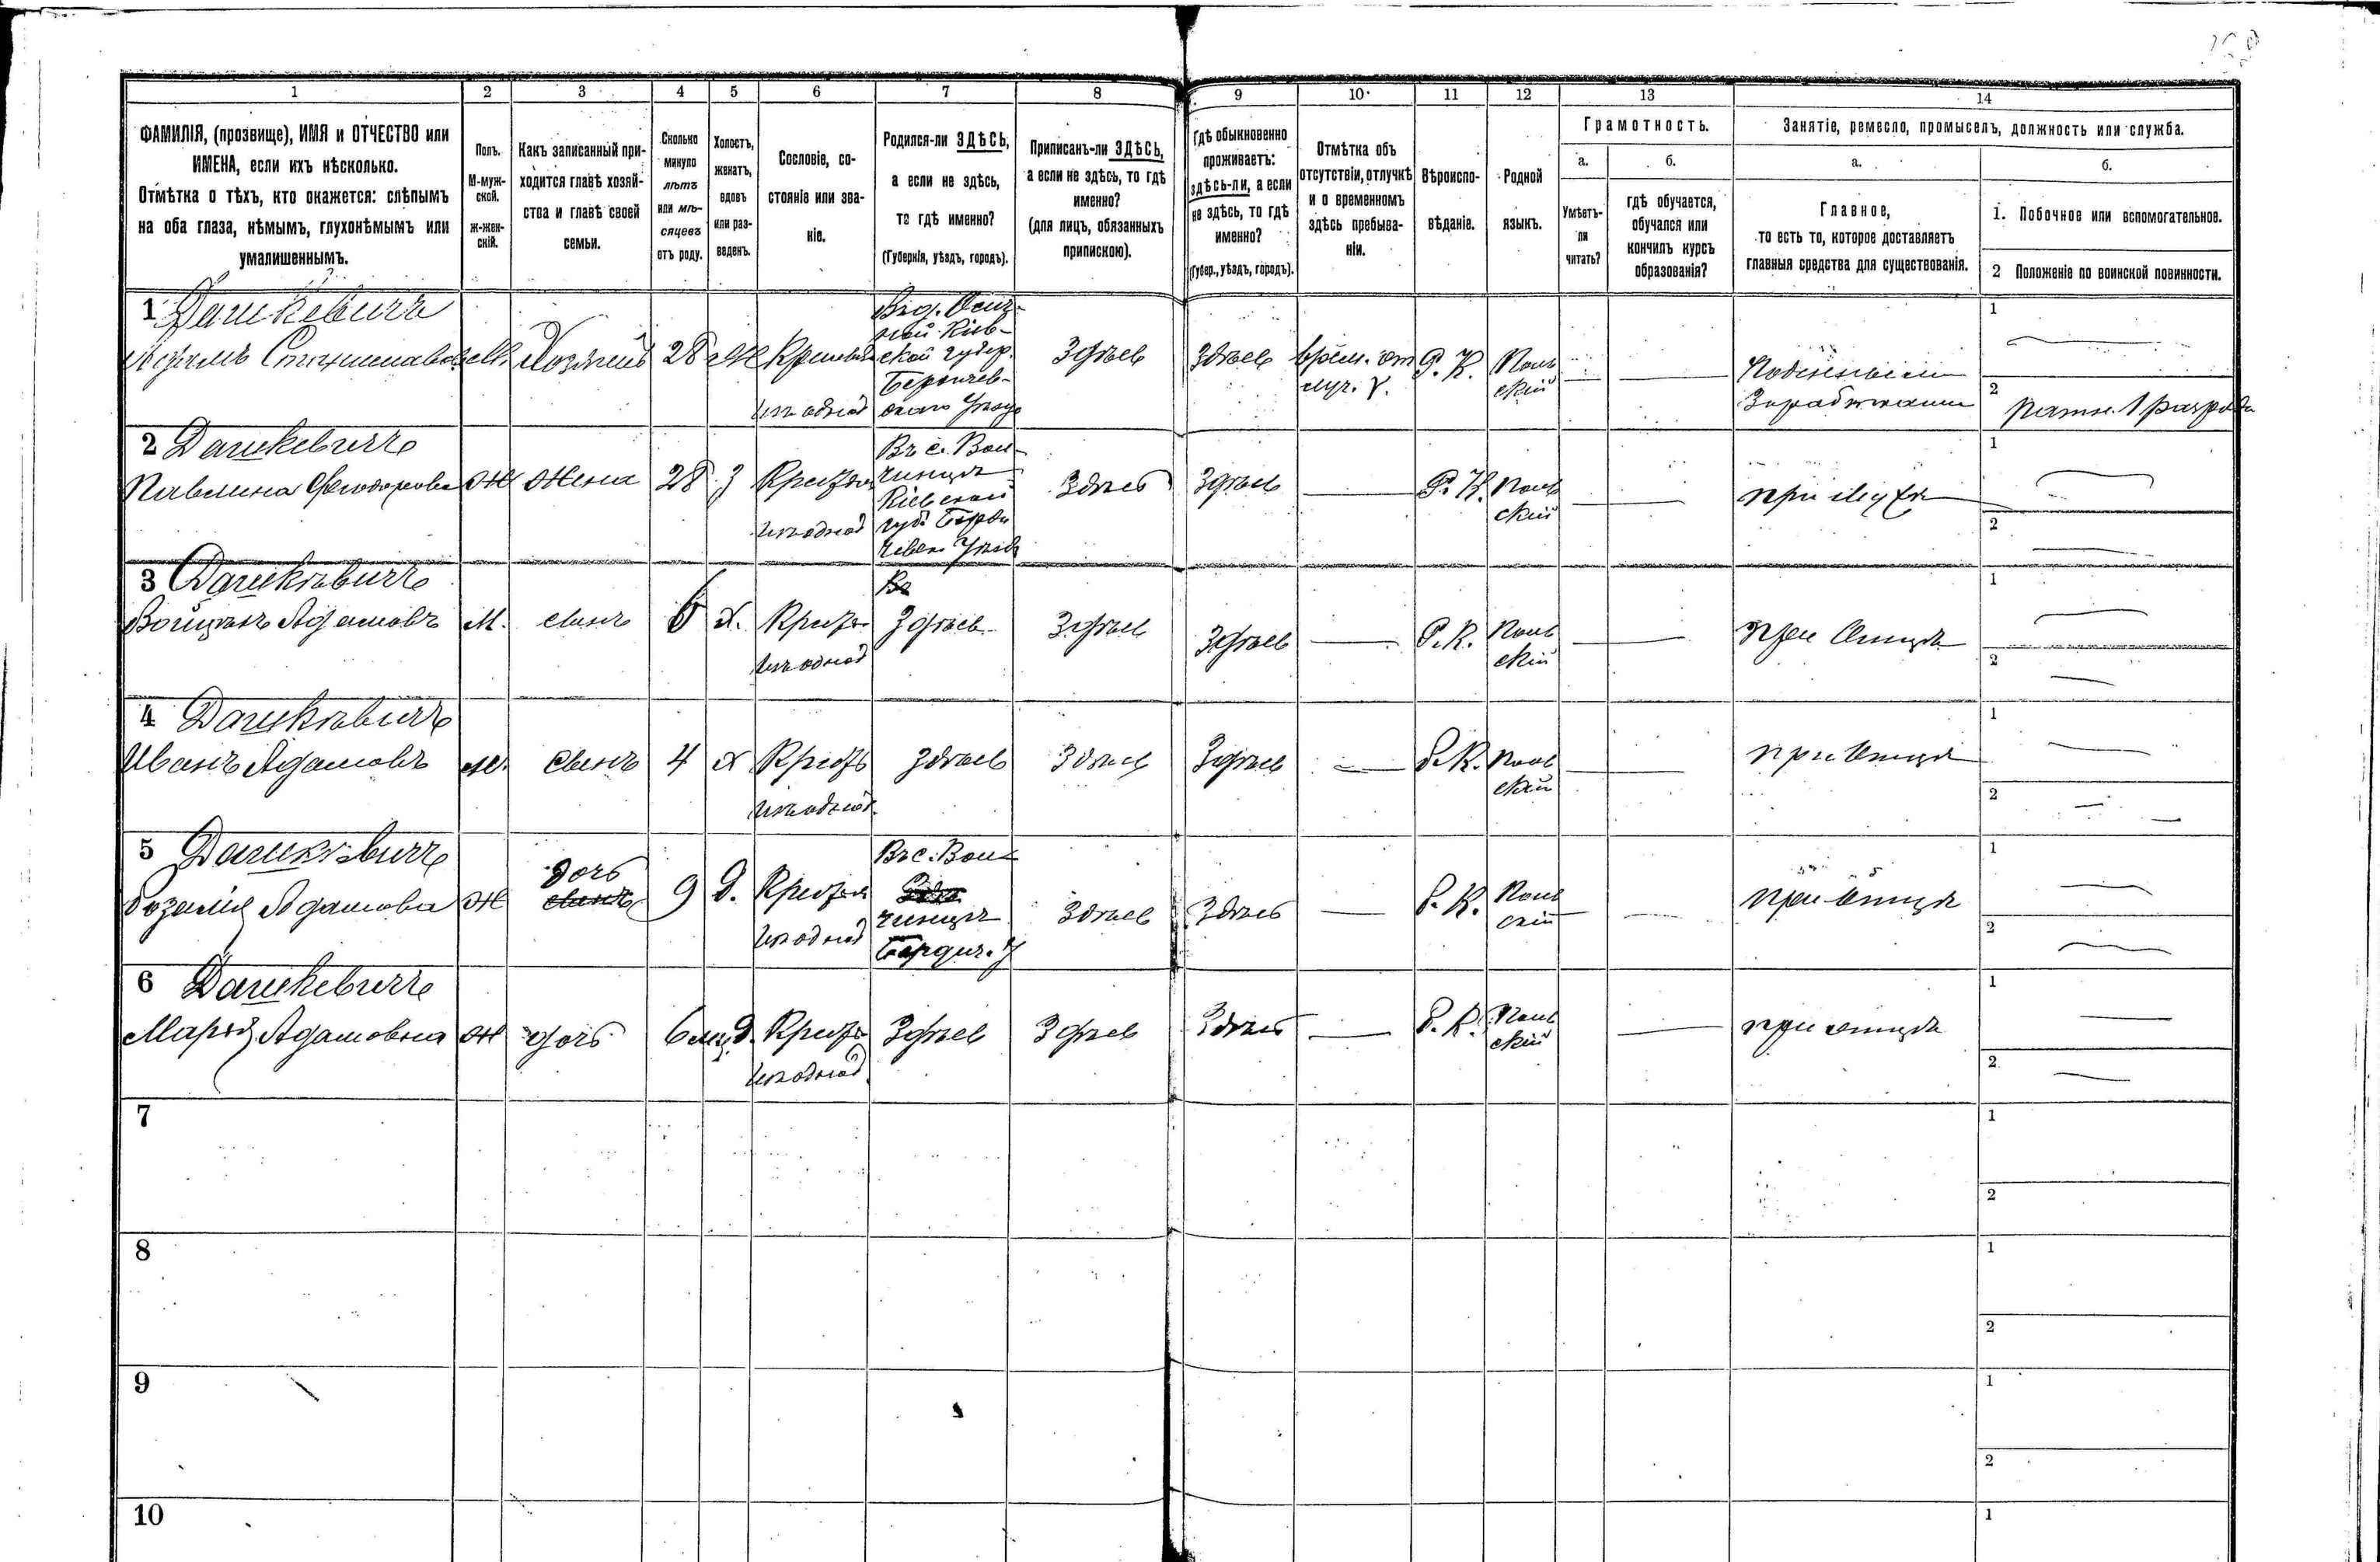 1 2 3 4 5 6 7 8 9 10 11 12 13 14
ФАМИЛІЯ, (прозвище), ИМЯ и ОТЧЕСТВО или
ИМЕНА, если ихъ нѣсколько.
Отмѣтка о тѣхъ, кто окажется: слѣпымъ
на оба глаза, нѣмымъ, глухонѣмымъ или
умалишеннымъ.
Полъ.
М-муж-
ской.
Ж-жен-
скій.
Какъ записанный при-
ходится главѣ хозяй-
ства и главѣ своей
семьи.
Сколько
минуло
лѣтъ
или мѣ-
сяцевъ
отъ роду.
Холостъ,
женатъ,
вдовъ
или раз-
веденъ.
Сословіе, со-
стояніе или зва-
ніе.
Родился-ли ЗДѢСЬ,
а если не здѣсь,
то гдѣ именно?
(Губернія, уѣздъ, городъ).
Приписанъ-ли ЗДѢСЬ,
а если не здѣсь, то гдѣ
именно?
(для лицъ, обязанныхъ
припискою).
Гдѣ обыкновенно
проживаетъ:
здѣсь-ли, а если
не здѣсь, то гдѣ
именно?
(Губер., уѣздъ, городъ).
Отмѣтка объ
отсутствіи, отлучкѣ
и о временномъ
здѣсь пребыва-
ніи.
Вѣроиспо-
вѣданіе.
Родной
языкъ.
Грамотность.
а.
Умѣетъ-
ли
читать?
б.
гдѣ обучается,
обучался или
кончилъ курсъ
образованія?
Занятіе, ремесло, промыселъ, должность или служба.
а.
Главное,
то есть то, которое доставляетъ
главныя средства для существованія.
б.
1. Побочное или вспомогательное.
2 Положеніе по воинской повинности.
1 Дашкевичъ
Адамъ Станиславовъ
М.
Хозяинъ
28
Ж
изъ однод
Кіев-
ской губер.
Бердичев-
скаго
Здѣсь
Здѣсь
врем. от
луч.
Р. К.
Поль
скій
Поденными
Заработками
1
2
ратн. 1 разряда
2 Дашкевичъ
Павлина Феодорова
Ж
Жена
28
З
изъ однод
Въ с. Вой-
Кіевской
губ. Берди
Здѣсь
Здѣсь
Р. К.
Поль
скій
при мужѣ
1
2
3 Дашкѣвичъ
Войцѣхъ Адамовъ
М.
сынъ
6
Х.
изъ однод
Въ
Здѣсь
Здѣсь
Здѣсь
Р. К.
Поль
скій
при Отцѣ
1
2
4 Дашкѣвичъ
Иванъ Адамовъ
М.
Сынъ
4
Х
изъ однод.
Здѣсь
Здѣсь
Здѣсь
Р. К.
Поль
скій
при Отцѣ
1
2
5 Дашкѣвичъ
Розалія Адамова
Ж
дочь
сынъ
9
Д.
изъ однод
Бердич. У
Здѣсь
Здѣсь
Р. К.
Поль
скій
при Отцѣ
1
2
6 Дашкевичъ
Марія Адамовна
Ж
дочь
6 мц
Д.
изъ однод.
Здѣсь
Здѣсь
Здѣсь
Р. К.
Поль
скій
при отцѣ
1
2
7
1
2
8
1
2
9
1
2
10
1